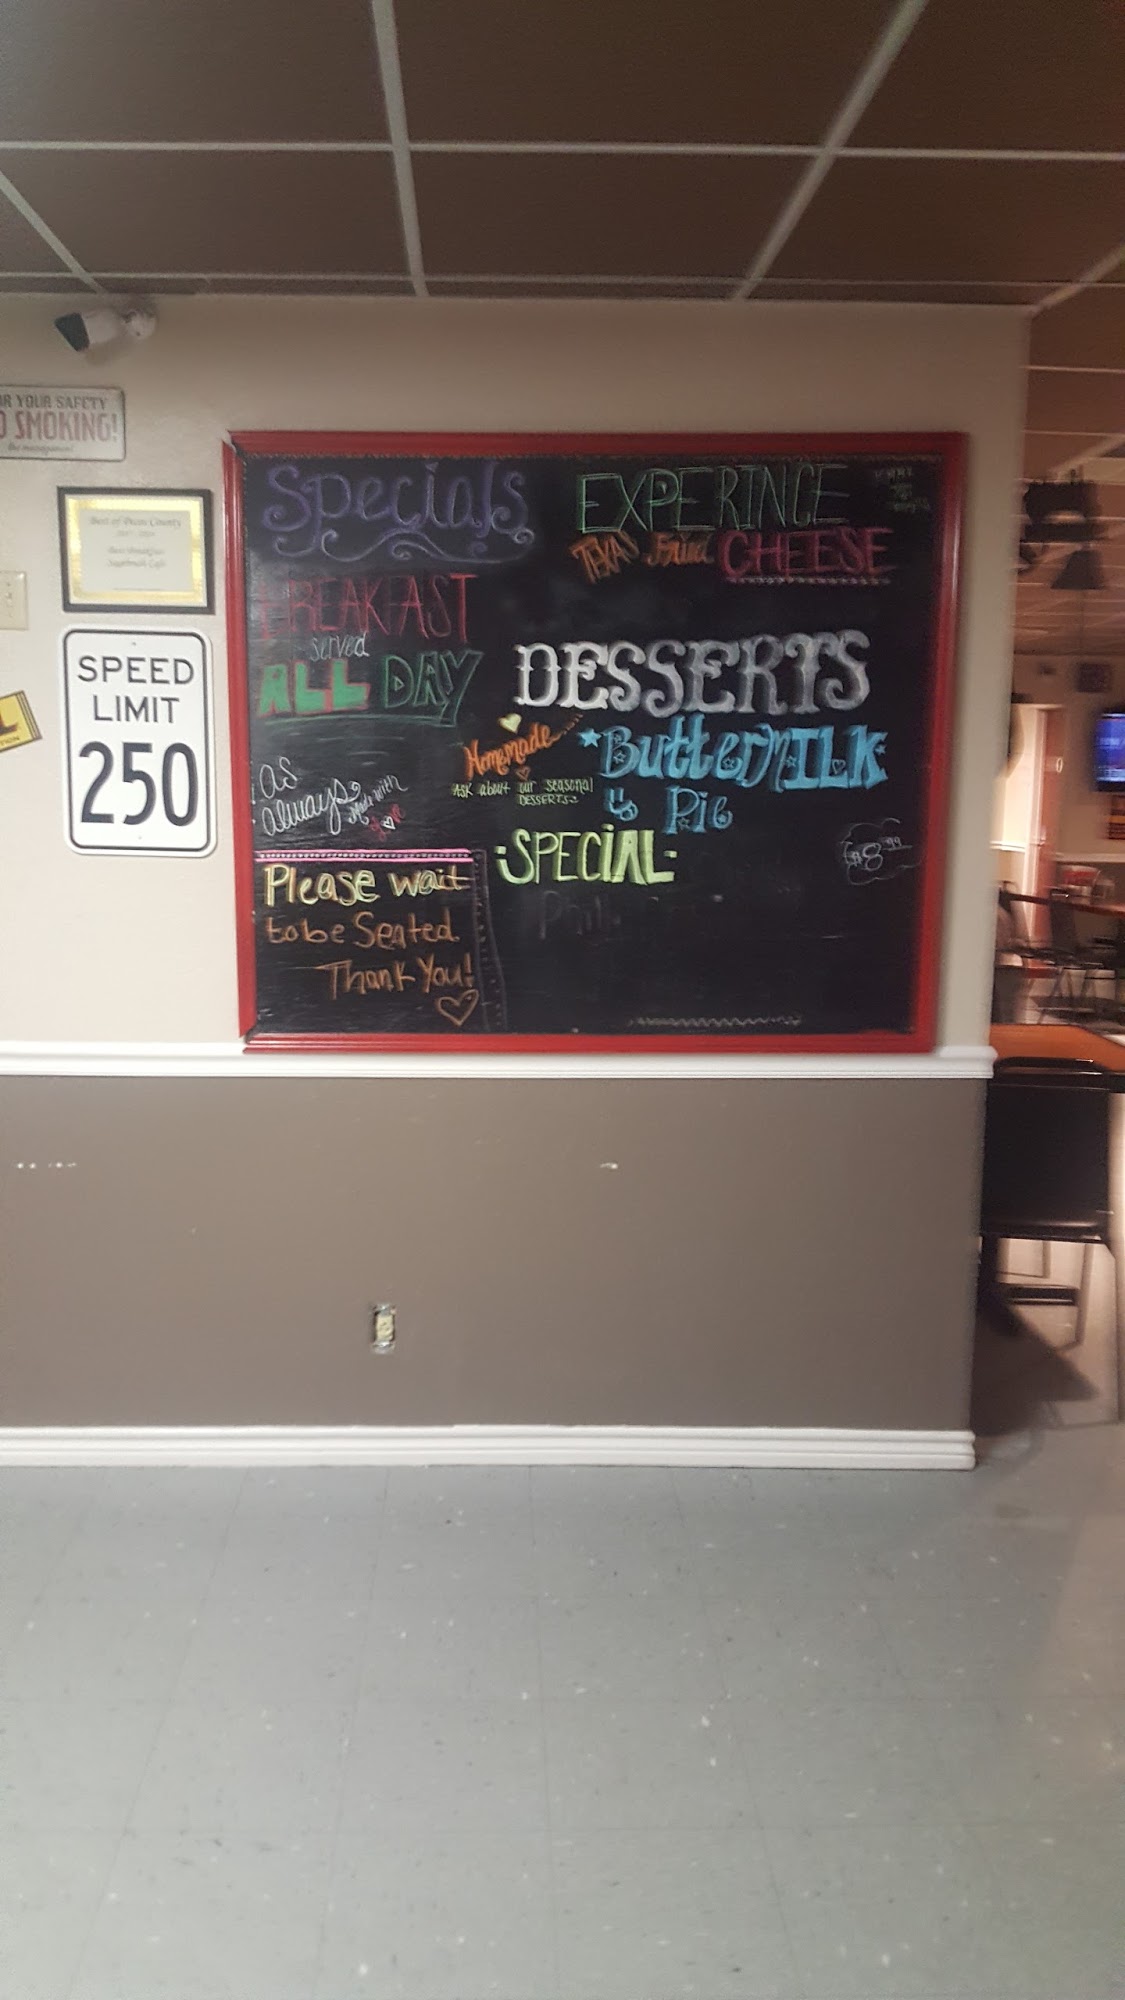 R YOUR SAFETY
O SMOKING!
the management
Best of
County
Best Breakfast
Cafe
SPEED
LIMIT
250
Specials
BREAKFAST
served
ALL DAY
As
always
Made with
Please wait
to be Seated.
Thank You!
EXPERINCE
TEXAS Fried CHEESE
DESSERTS
Homemade
ButtermILK
Pie
ASK about our seasonal
DESSERTS
-SPECIAL-
$8.99